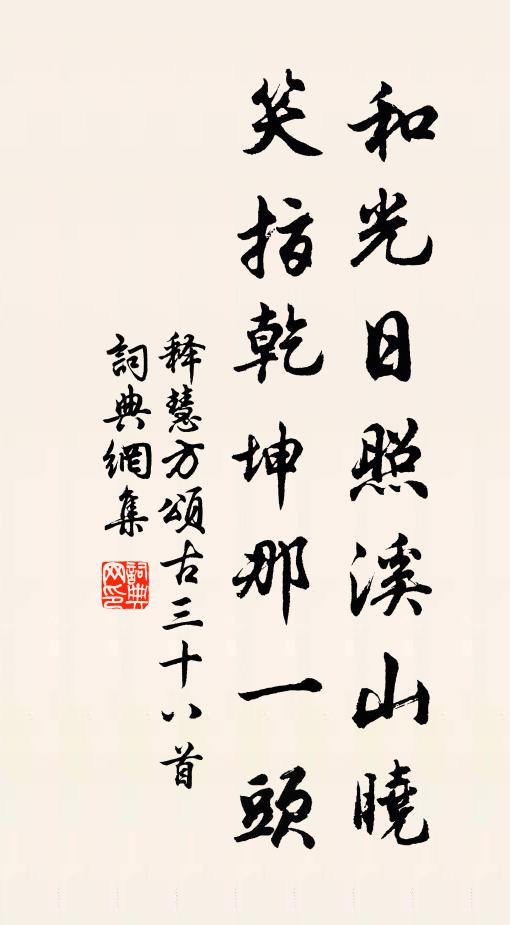 和光日照溪山曉
笑指乾坤那一頭
释慧方頌古三十八首
詞典網集
詞典網印